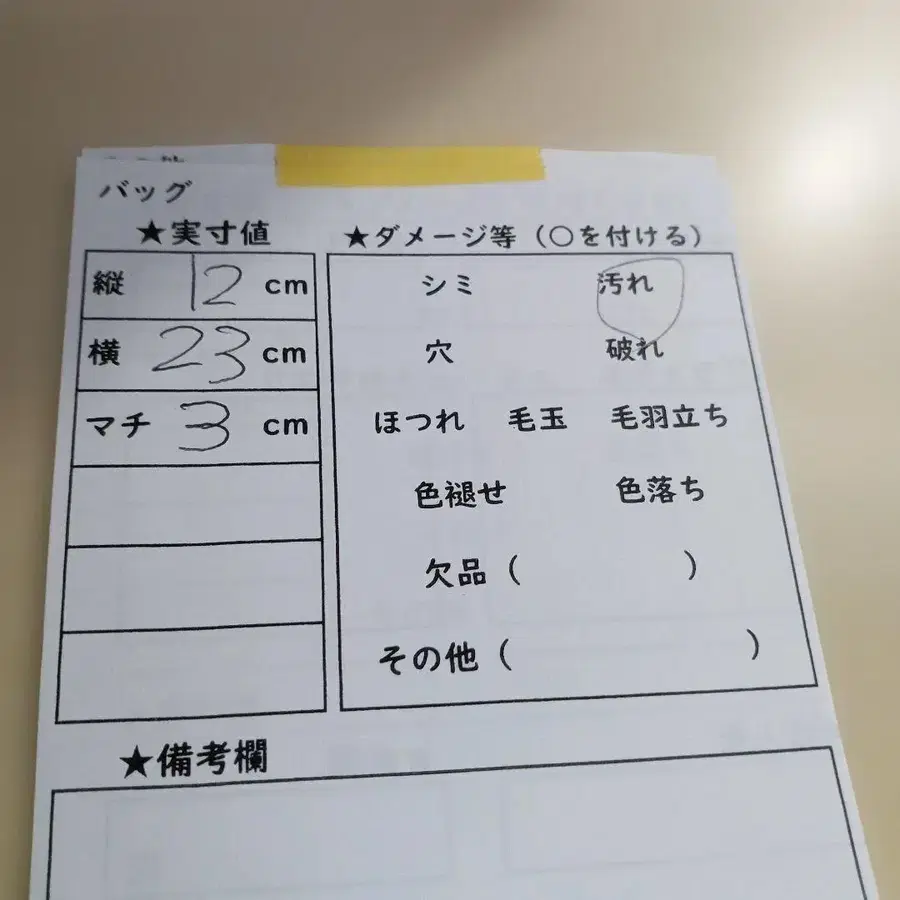 バッグ
★実寸値
縦 12 cm
横 23 cm
マチ 3 cm
★ダメージ等（○を付ける）
シミ 汚れ
穴 破れ
ほつれ 毛玉 毛羽立ち
色褪せ 色落ち
欠品（ ）
その他（ ）
★備考欄